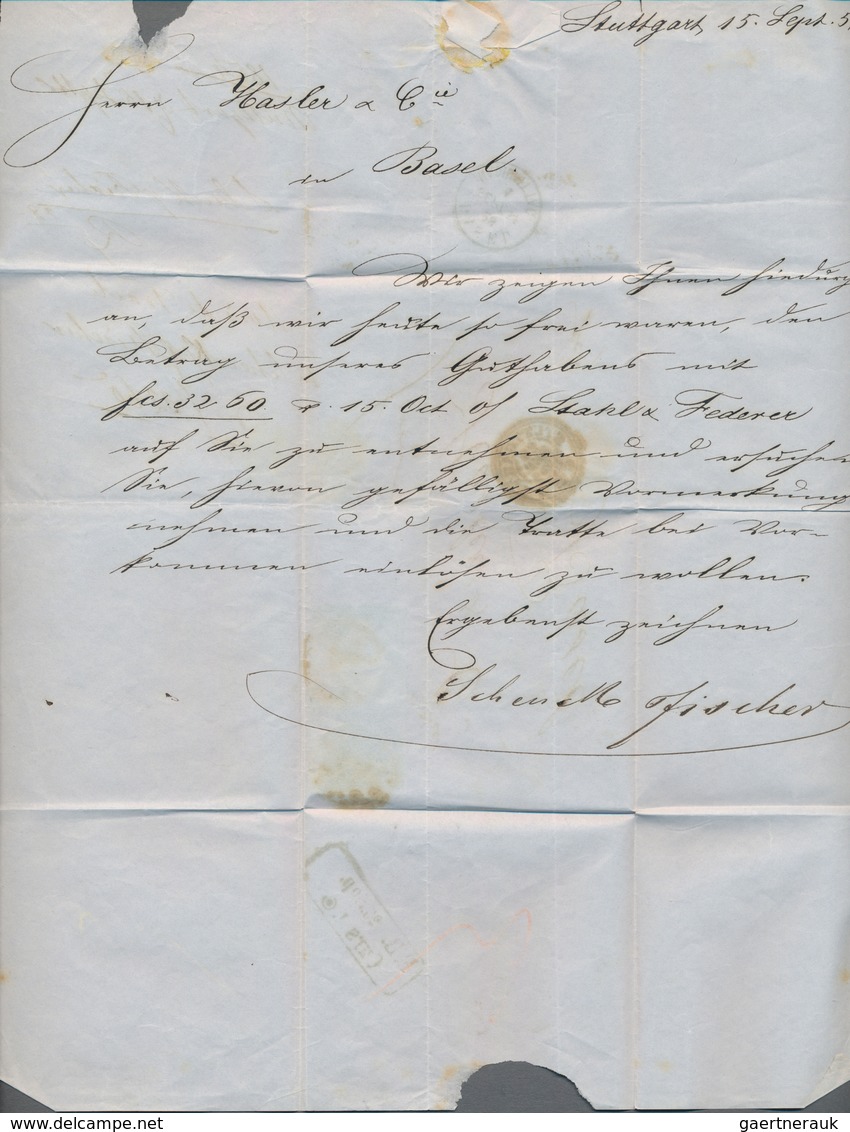 Stuttgart 15. Sept. 5
Herrn Hasler & Cie
in Basel.
Wir zeigen Ihnen hiedurch
an, daß wir heute so frei waren, den
Betrag unseres Guthabens mit
fcs. 32 60 p. 15. Oct o/ Stahl & Federer
auf Sie zu entnehmen und ersuchen
Sie, hievon gefälligst Vormerkung
nehmen und die Tratte bei Vor-
kommen einlösen zu wollen.
Ergebenst zeichnen
Fischer
gaertnerauk